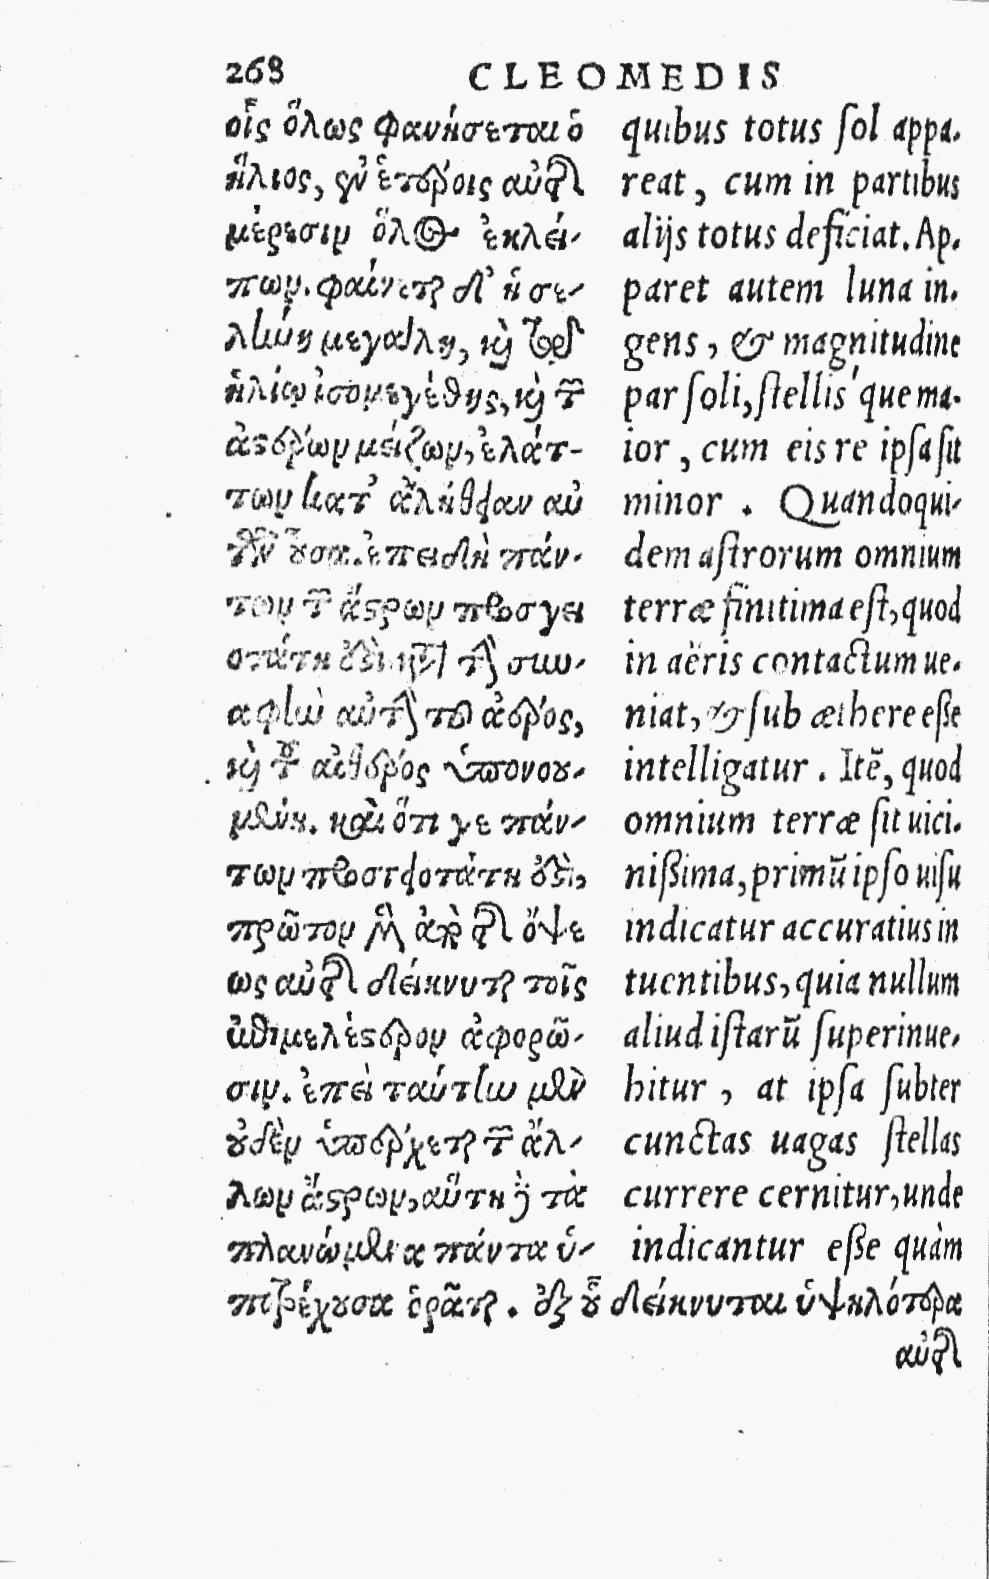 268 CLEOMEDIS
οἷς ὅλως φανήσεται ὁ
ἥλιος, ἐν ἑτέροις αὐτῆς
μέρεσιν ὅλος ἐκλεί-
πων. φαίνεται δ' ἡ σε-
λήνη μεγάλη, καὶ τῷ
ἡλίῳ ἰσομεγέθης, καὶ τῶν
ἀστέρων μείζων, ἐλάτ-
των κατ' ἀλήθειαν αὐ
τῶν οὖσα. ἐπειδὴ πάν-
των τῶν ἄστρων προσγει
οτάτη ἐστὶ τὴν συν-
αφὴν αὐτῆς τοῦ ἀέρος,
καὶ τοῦ αἰθέρος ὑπονοου-
μένη. καὶ ὅτι γε πάν-
των προσγειοτάτη ἐστὶ,
πρῶτον μὲν ἀπὸ τῆς ὄψε
ως αὐτῆς δείκνυται τοῖς
ἐπιμελέστερον ἀφορῶ-
σιν. ἐπεὶ ταύτην μὲν
οὐδὲν ὑπέρχεται τῶν ἄλ-
λων ἄστρων, αὕτη δὲ τὰ
πλανώμενα πάντα ὑ-
περέχουσα ὁρᾶται. ἐξ οὗ δείκνυται ὑψηλότερα
αὐτῆς
quibus totus sol appa-
reat, cum in partibus
alijs totus deficiat. Ap-
paret autem luna in-
gens, & magnitudine
par soli, stellis'que ma-
ior, cum eis re ipsa sit
minor. Quandoqui-
dem astrorum omnium
terræ finitima est, quod
in aëris contactum ue-
niat, & sub æthere esse
intelligatur. Itē, quod
omnium terræ sit uici-
nißima, primū ipso uisu
indicatur accuratius in
tuentibus, quia nullum
aliud istarū superinue-
hitur, at ipsa subter
cunctas uagas stellas
currere cernitur, unde
indicantur eße quàm